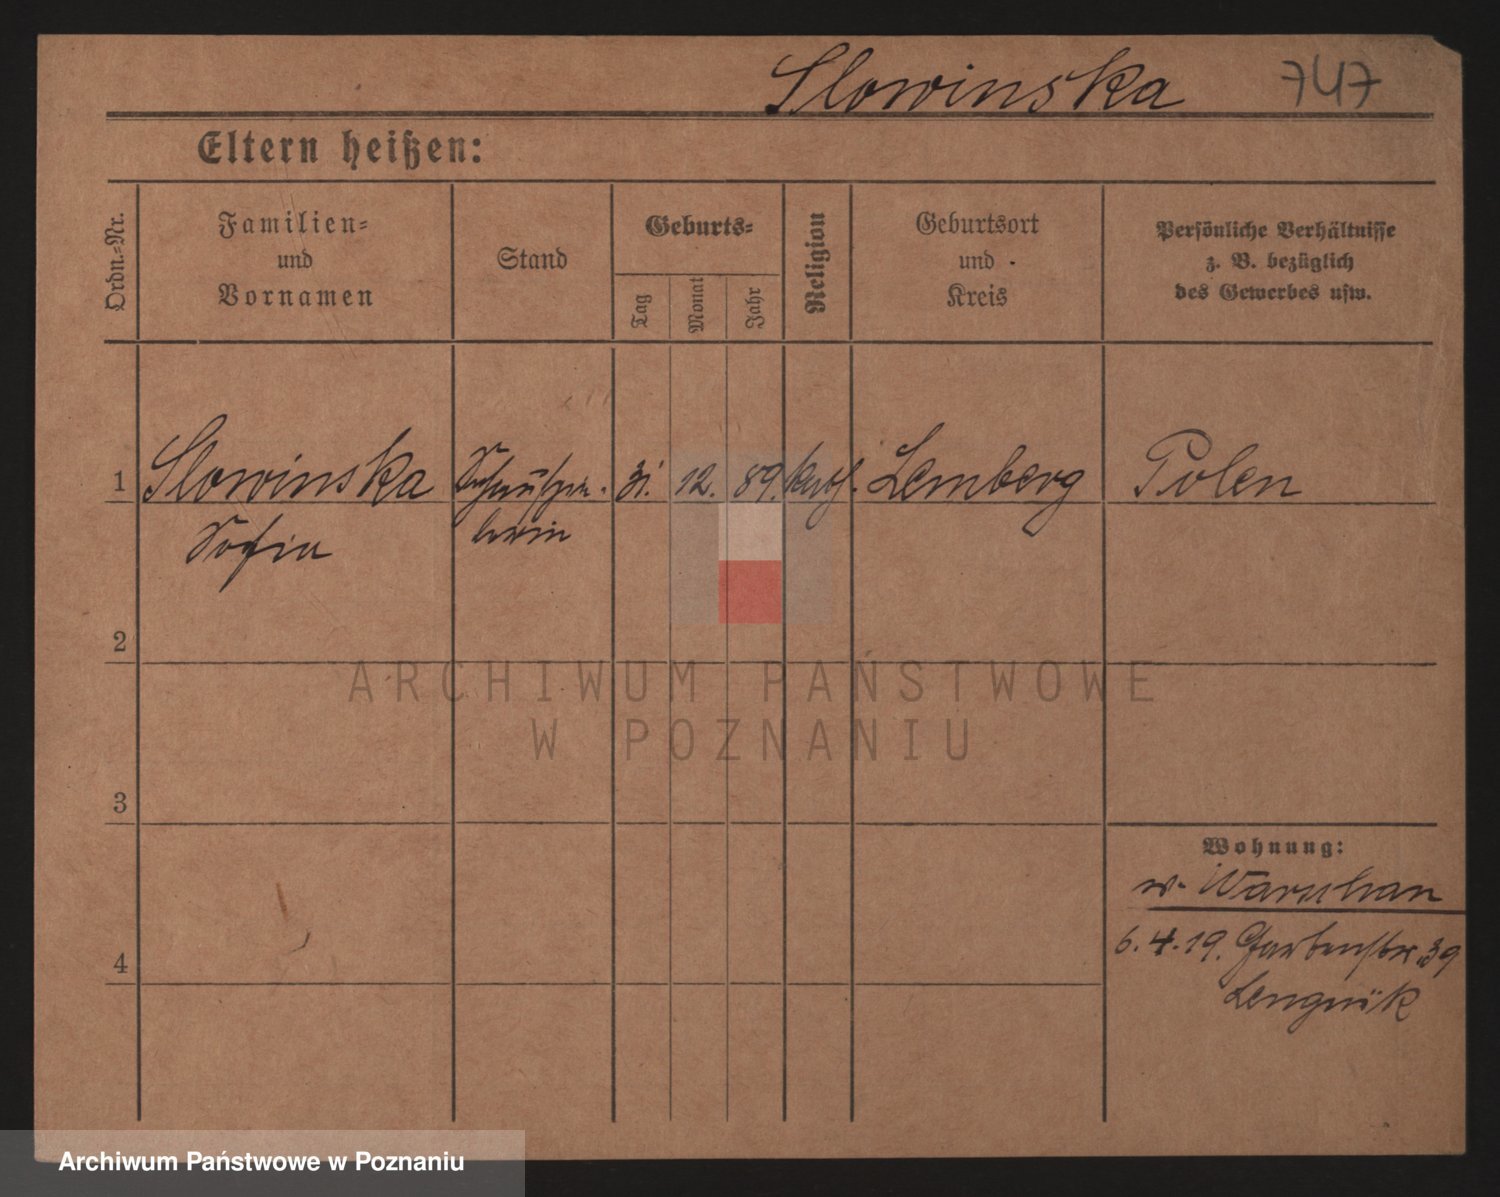 Slowinska 747
Eltern heißen:
Ordn.-Nr.
Familien-
und
Vornamen
Stand
Geburts-
Tag
Monat
Jahr
Religion
Geburtsort
und
Kreis
Persönliche Verhältnisse
z. B. bezüglich
des Gewerbes usw.
1 Slowinska Schauspie- 31. 12. 89. kath. Lemberg Polen
Sofia lerin
2
3
4
Wohnung:
v. Warschau
6.4.19. Gartenstr. 39
ARCHIWUM PAŃSTWOWE
W POZNANIU
Archiwum Państwowe w Poznaniu